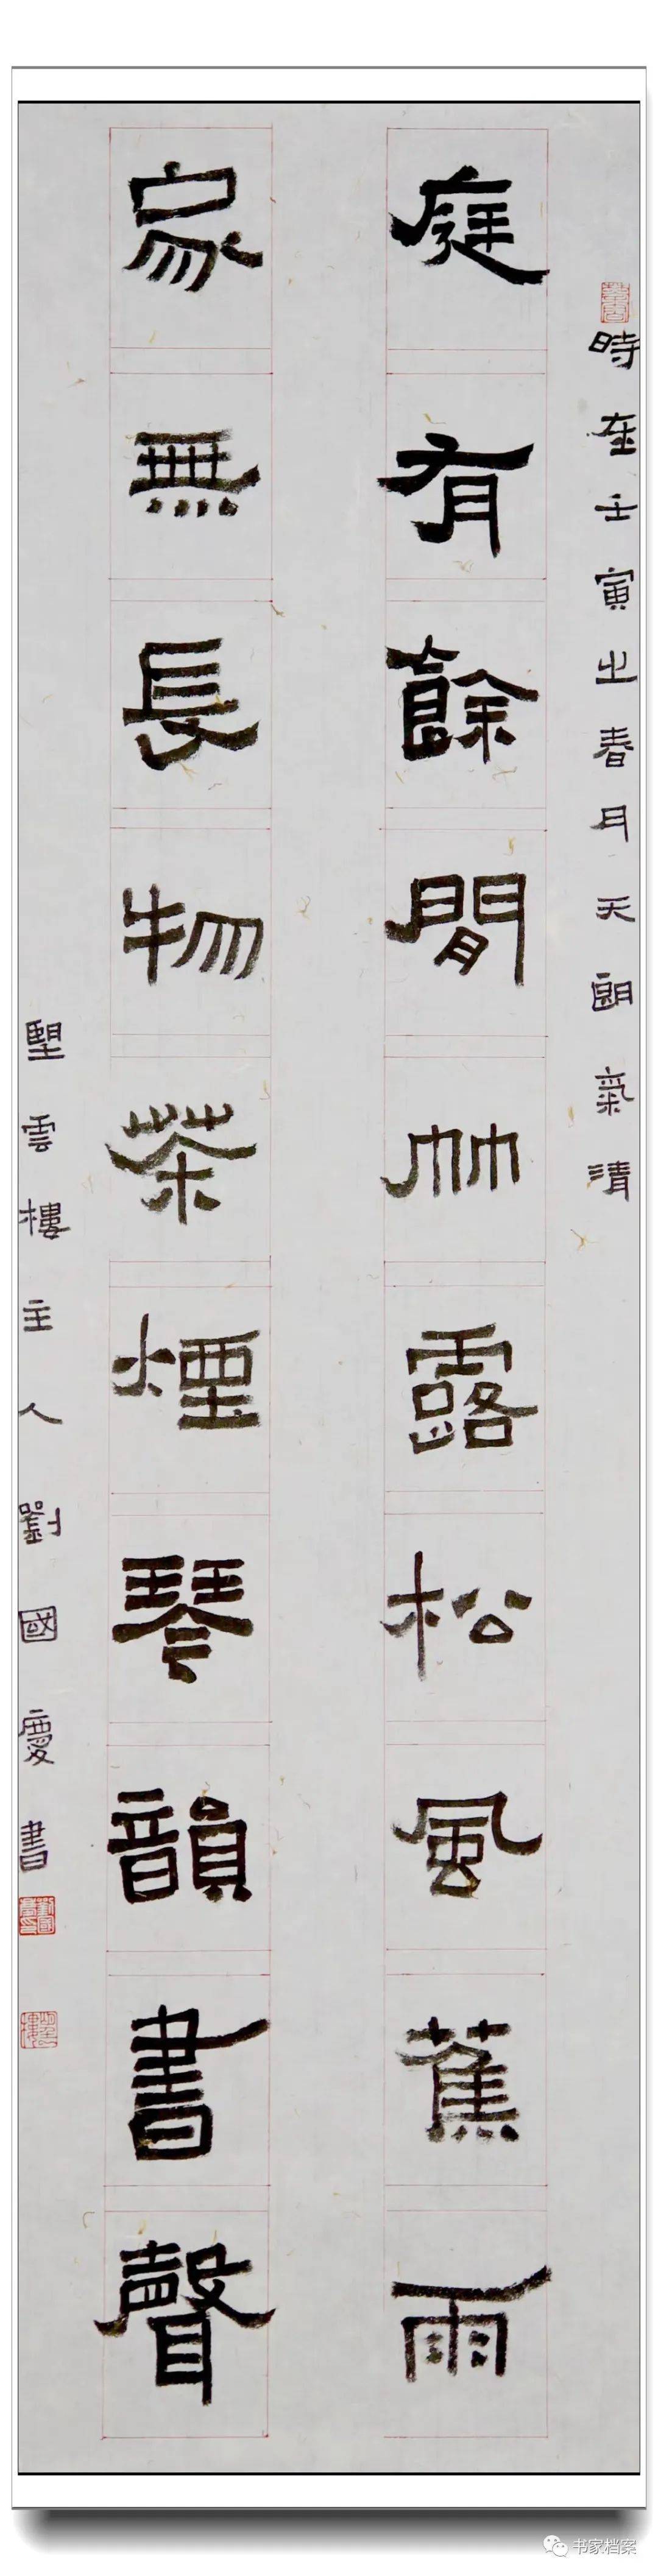 時在壬寅之春月天朗氣清
庭有餘閒竹露松風蕉雨
家無長物茶煙琴韻書聲
雲樓主人劉國慶書
书家档案